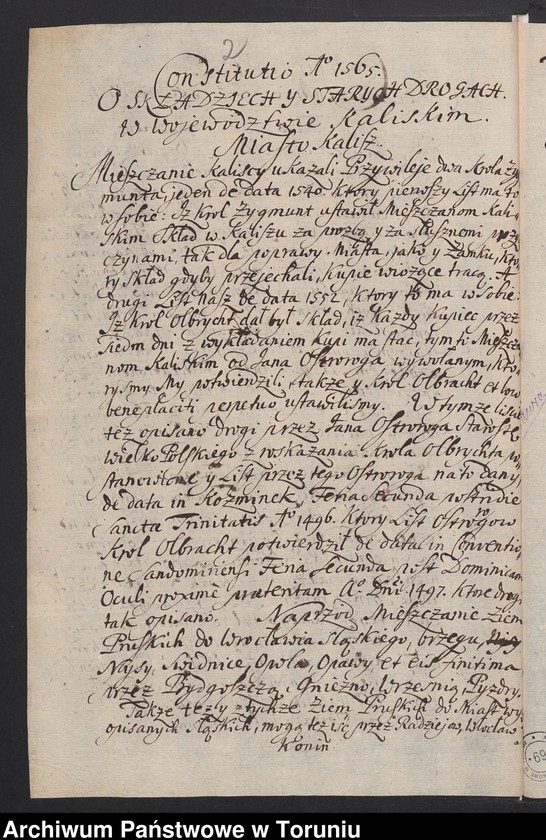 2
Constitutio Aº 1565.
O SKŁADZIECH Y STARYCH DROGACH.
w Wojewodztwie Kaliskim.
Miasto Kalisz.
Mieszczanie Kaliscy ukazali Przywileje dwa Krola Zy-
munta, jeden de data 1540. ktory pierwszy List ma to
w sobie: Iz Krol Zygmunt ustawił Mieszczanom Kali-
skim Skład w Kaliszu za prozbą y za słusznemi przy
czynami, tak dla poprawy Miasta, jako y Zamku, kto-
ry Skład gdyby przejechali, kupie wiozące tracą. A
drugi List nasz de data 1552, ktory to ma w sobie:
Iz Krol Olbrycht dał był Skład, iz kazdy kupiec przez
siedm dni z wykładaniem kupi ma stac, tymto Mieszcza
nom Kaliskim od Jana Ostroroga wywołanym, kto-
rysmy My potwierdzili, także y Krol Olbracht et
beneplaciti perpetuo ustawilismy. W tymze liscie
też opisano drogi przez Jana Ostroroga Starostę
wielko Polskiego z roskazania Krola Olbrychta
stanowione y List przez tego Ostroroga na to dany,
de data in Kozminek, Feria Secunda postridie
Sancta Trinitatis Aº 1496. Ktory List Ostrogow
Krol Olbracht potwierdził de data in Conventio
ne Sandomiriensi Feria Secunda post Dominicam
Oculi proxime praeteritam Aº Dni 1497. Ktore drogi
tak opisano. Naprzod Mieszczanie Ziem
Pruskich do Wrocławia Sląskiego, brzegu,
Naysy, Swidnice, Opola, Opawy et eis finitima
przez Bydgoszczą, Gniezno, Wrzesnią, Pyzdry.
Także tez y z tychże Ziem Pruskich do Miast wy
opisanych Sląskich, mogą też iść przez Radziejow, Wrocław
Konin
69
Archiwum Państwowe w Toruniu